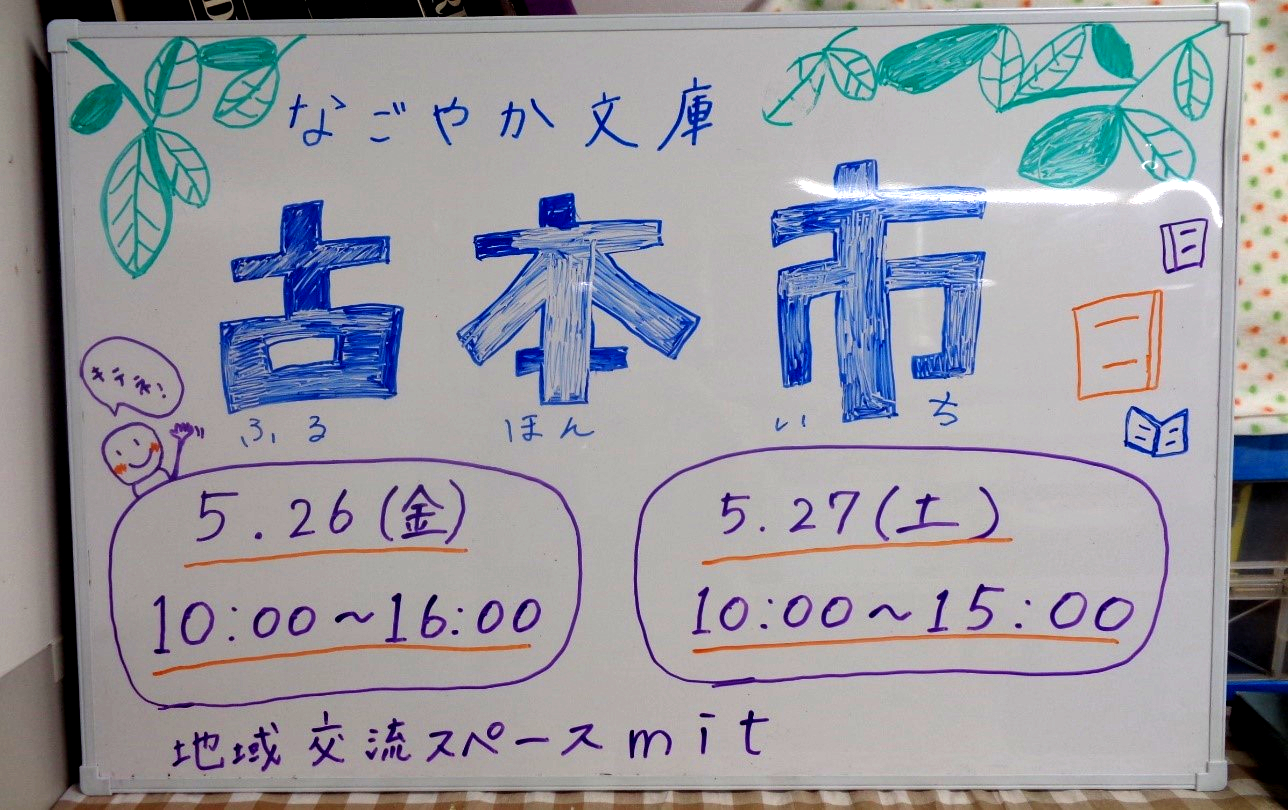 なごやか文庫
古本市
ふる ほん いち
きてネ!
5.26(金)
10:00~16:00
5.27(土)
10:00~15:00
地域交流スペースmit